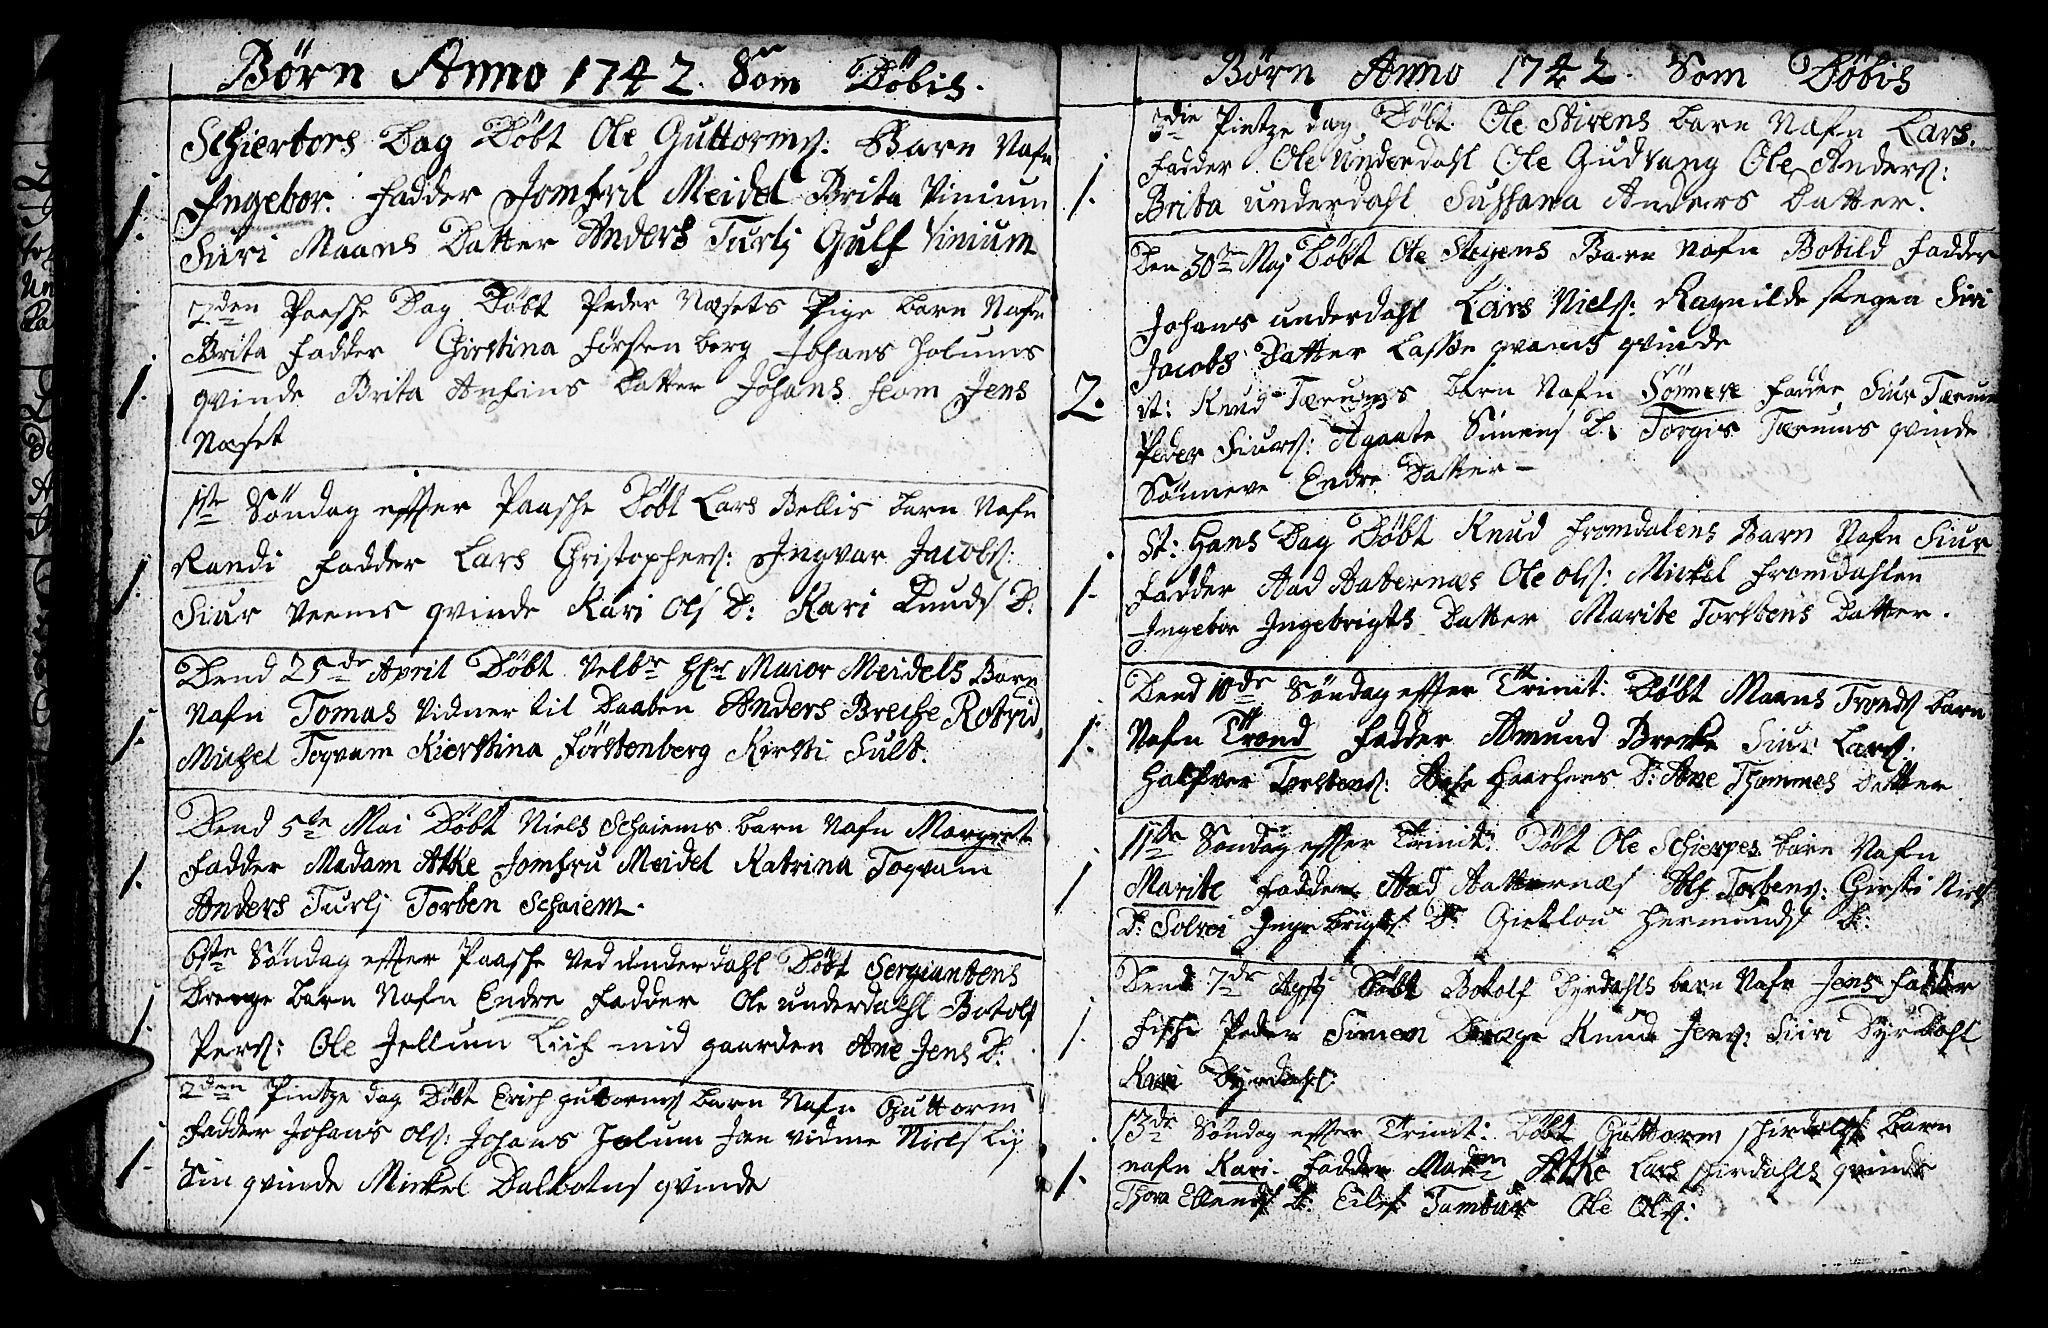 Børn Anno 1742. Som Döbis.
Schiertors Dag Döbt Ole Guttorms: Barn Nafn
1. Ingebor. Fadder Jomfru Meidel Brita Vinium
Siuri Maans Datter Anders Turlj Gulf Vinium
2den Paasche Dag Döbt Peder Næsets Pige barn Nafn
Brita Fadder Christina Førsten berg Johans Holums
1. qvinde Brita Anfins Datter Johans Hom Jens
Næset
1ste Söndag efter Paasche Döbt Lars Bellis barn Nafn
Randi Fadder Lars Christophers: Ingvar Jacobs:
1. Siur Veems qvinde Kari Ols D: Kari Knuds D.
Dend 25de April Döbt Velbr Hr Maior Meidels Barn
Nafn Tomas Vidner til Daaben Anders Breche Rotvid
1. Michel Toqvam Kierstina Förstenberg Kirsti Sult.
Dend 5te Mai Döbt Niels Schaiems barn Nafn Margret
1. Fadder Madam Atke Jomfru Meidel Katrina Toqvam
Anders Turlj Torben Schaiem.
6ste Söndag efter Paasche Ved underdahl Döbt Sergiantens
Drenge barn Nafn Endre Fadder Ole underdahl Botolf
1. Pers: Ole Jellum Liif mid gaarden Ane Jens D:
2den Pintze dag Döbt Erich guttorms barn Nafn Guttorm
Fadder Johans Ols: Johans Holum Jan vidme Niels Lij
1. Sin qvinde Mickel Dalbotns qvinde
Børn Anno 1742. Som Döbis
3die Pintze dag Döbt Ole Stivens barn Nafn Lars.
Fadder Ole Underdahl Ole Gudvang Ole Anders:
1. Brita underdahl Sussana Anders Datter.
Den 30te Maj Döbt Ole Stegens Barn Nafn Botild Fadder
Johans underdahl Lars Niels: Ragnilde stegen Siri
Jacobs Datter Lasse qvams qvinde
2. dt: Knud Tærums barn Nafn Sönneve Fadder Siur Tærum
Peder Siurs: Agaate Simens D: Torgis Tærums qvinde
Sönneve Endre Datter -
St: Hans Dag Döbt Knud Fromdalens Barn Nafn Siur
1. Fadder Aad Aabernæs Ole Ols: Mickel Fromdahlen
Ingebor Ingebrigts Datter Marite Torstens Datter.
Dend 10de Söndag efter Trinit: Döbt Maans Tronds barn
1. Nafn Trond Fadder Amund Brecke Siur Lars:
Halfver Torstens: Aase Haachens D: Ane Thommes Datter
11te Söndag efter Trinit: Döbt Ole Schierpes barn Nafn
1 Marite Fadder Aad Aatternæs Alf Torbens: Chirsti Niels
D: Solvei Ingebrigts D: Gietlou Hermunds D:
Dend 7de Agstj Döbt Botolf Dyrdahls barn Nafn Jens Fadder
1. Fische Peder Simen Drage Knud Jens: Siri Dyrdahl
Kari Dyrdahl:
13de Söndag efter Trinit: Döbt Guttorm schirdahls Barn
1. nafn Kari. Fadder Madmn Atke Lars schirdahls qvinde
Thora Ellends D: Eilef Tambur Ole Ols: